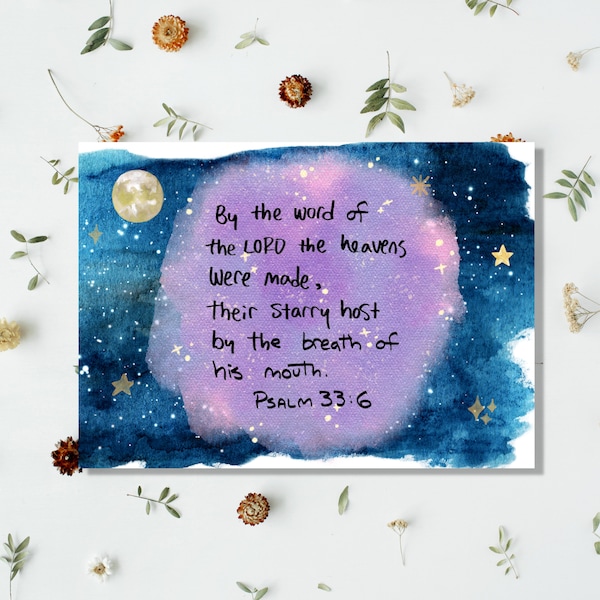 By the word of
the LORD the heavens
were made,
their starry host
by the breath of
his mouth.
PSALM 33:6